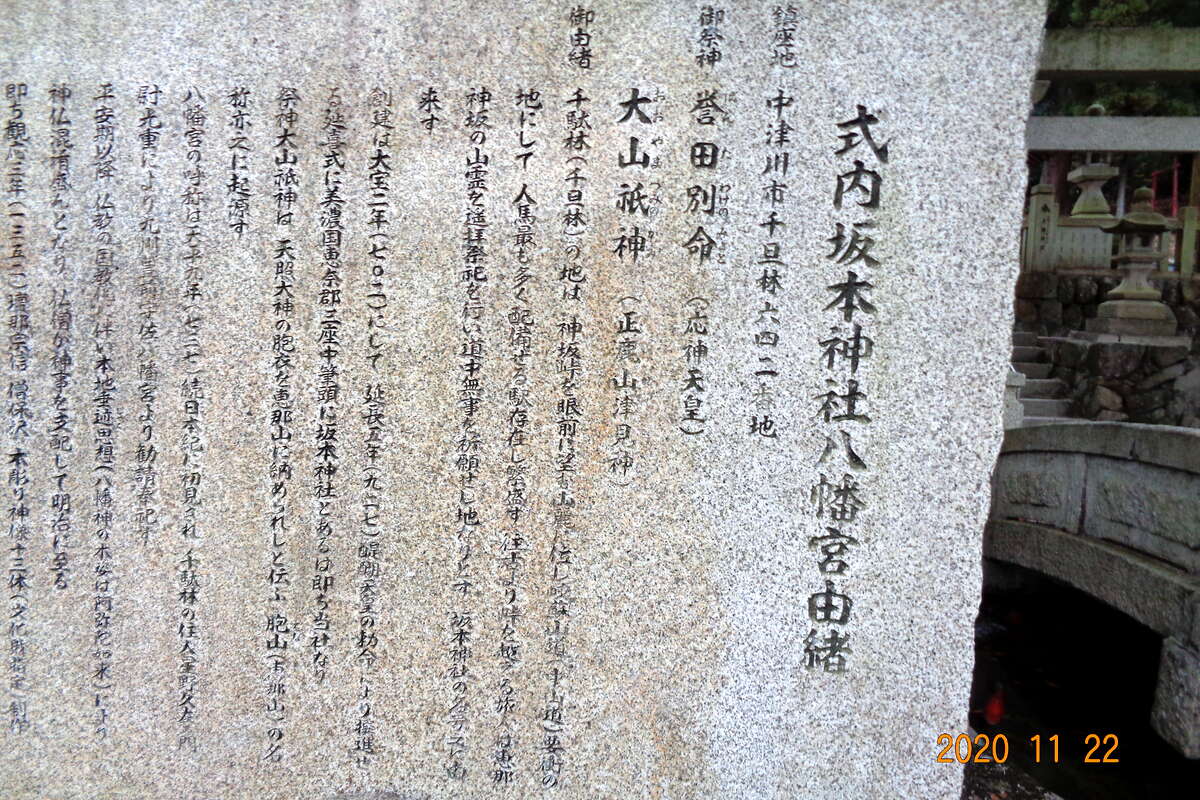 式内坂本神社八幡宮由緒
鎮座地 中津川市千旦林六四二番地
御祭神 誉田別命（応神天皇）
大山祇神（正鹿山津見神）
御由緒 千駄林（千旦林）の地は 神坂峠を眼前に望む山麓に位し 要衝の
地にして 人馬最も多く配備せる駅存在し繁盛す 往古より峠を越える旅人は恵那
神坂の山霊を遥拝祭祀を行い道中無事を祈願せし地なりとす 坂本神社の名
来す
創建は大宝二年（七〇二）にして 延長五年（九二七）醍醐天皇の勅命により撰進せ
る延喜式に美濃国恵奈郡三座中筆頭に坂本神社とあるは即ち当社なり
祭神大山祇神は 天照大神の胞衣を恵那山に納められしと伝ふ 胞山（恵那山）の名
称亦ここに起源す
八幡宮の呼称は天平九年（七三七）続日本紀に初見され 千駄林の住人
尉光重により九州豊前宇佐八幡宮より勧請奉祀す
平安期以降 仏教の国教化に伴い本地垂迹思想（八幡神の本姿は阿弥陀如来）により
神仏混淆盛んとなり 仏僧が神事を支配して明治に至る
即ち観応二年（一三五一） 木彫り神像十三体
2020 11 22